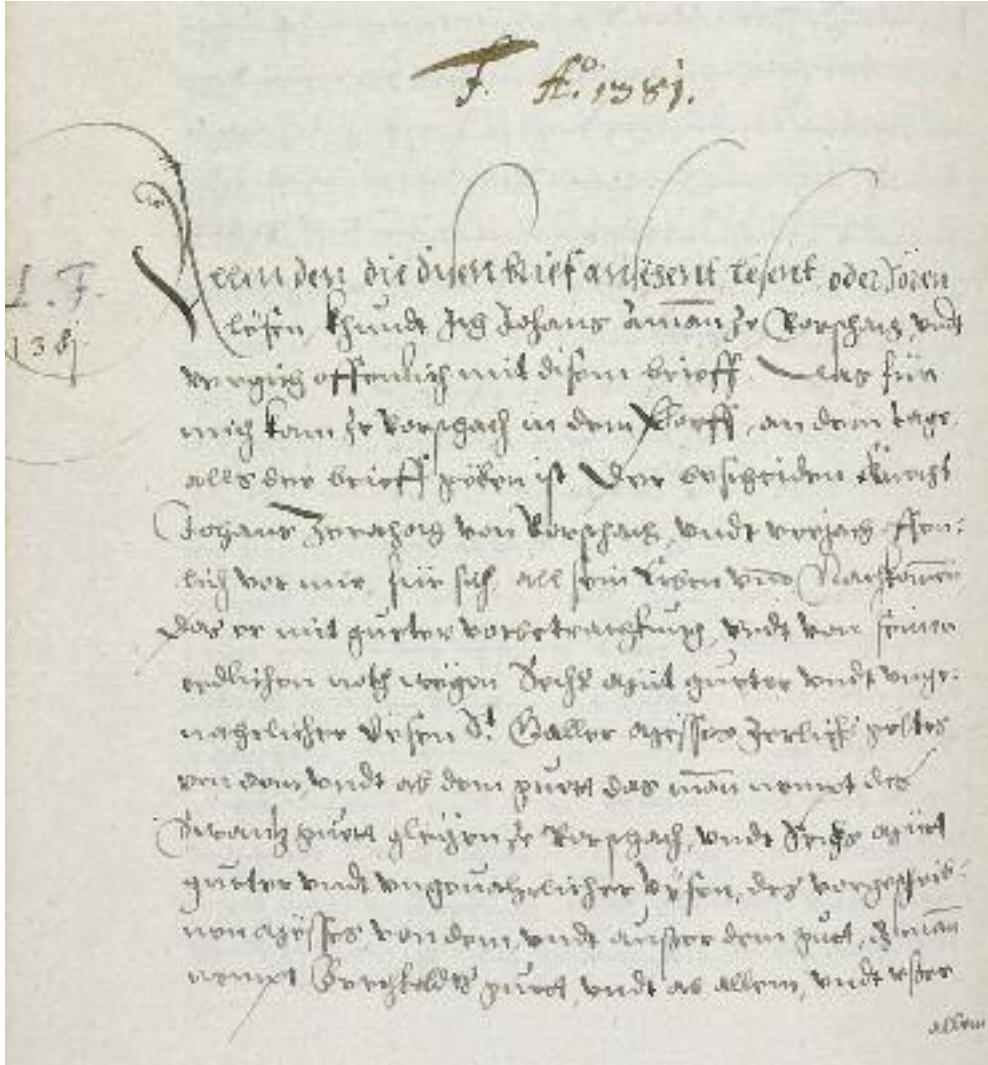 F. Aº. 1381.
L. F.
138j
Allen den die disen brief ansehent, lesent, oder hören
lesen, khundt Ich Johans Amman ze Rorschach, vndt
vergich offenlich mit disem brieff. Das für
mich kam ze Rorschach in dem Dorff, an dem tage,
alls der brieff geben ist, Der bescheiden Knecht
Johans von Rorschach, vndt verjach offen:
lich vor mir, für sich, all sein Erben vnd Nachkomen
das er mit gueter vorbetrachtung, vndt von seiner
redlichen noth wegen Sechs Mut gueter vndt unge:
uahrlicher Vesen St. Galler Messes Jerlichs geltes
von dem, vndt ab dem guett das man nemet des
guett gelegen ze Rorschach, vndt Sechs Mütt
gueter vndt ungeuahrlicher Vesen, des vorgesschrib:
nen Messes, von dem, vndt ausser dem guet, dz man
nemet Berchtoldts guett, vndt ab allem, vndt usser
allem